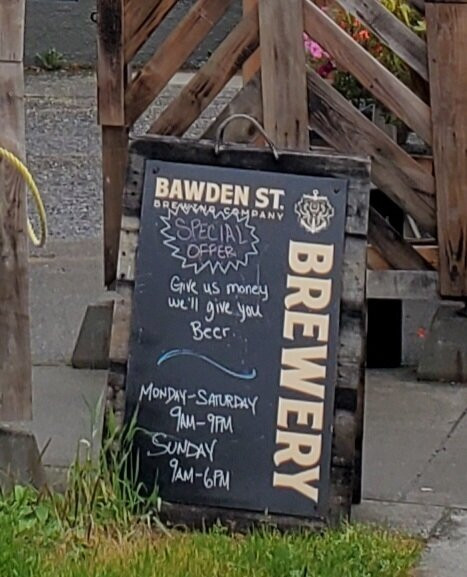 BAWDEN ST.
BREWING COMPANY
SPECIAL
OFFER
Give us money
we'll give you
Beer.
MONDAY-SATURDAY
9AM-9PM
SUNDAY
9AM-6PM
BREWERY